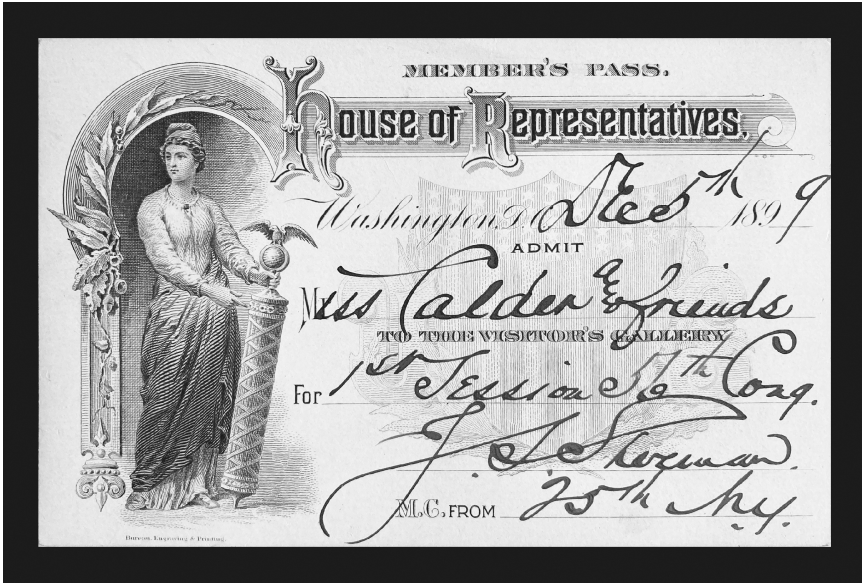 MEMBER'S PASS.
House of Representatives.
Washington, D.C. Dec 5th 1899
ADMIT
Miss Calder & friends
TO THE VISITOR'S GALLERY
For 1st Session 56th Cong.
J. S. Sherman.
M.C. FROM 25th N.Y.
Bureau, Engraving & Printing.